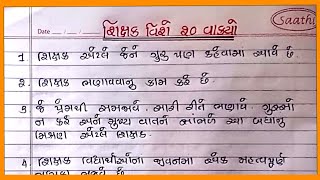 Saathi
Date / /
શિક્ષક વિશે ૨૦ વાક્યો
1 શિક્ષક એટલે જેને ગુરુ પણ કહેવામાં આવે છે.
2. શિક્ષક ભણાવવાનું કામ કરે છે.
3 જે પ્રેમથી સમજાવે. સારી રીતે ભણાવે. ગુસ્સો
ન કરે અને ગુહ્ય વાતને સાંભળે આ બધાનું
મિશ્રણ એટલે શિક્ષક.
4 શિક્ષક વિદ્યાર્થીઓના જીવનમાં એક મહત્વપૂર્ણ